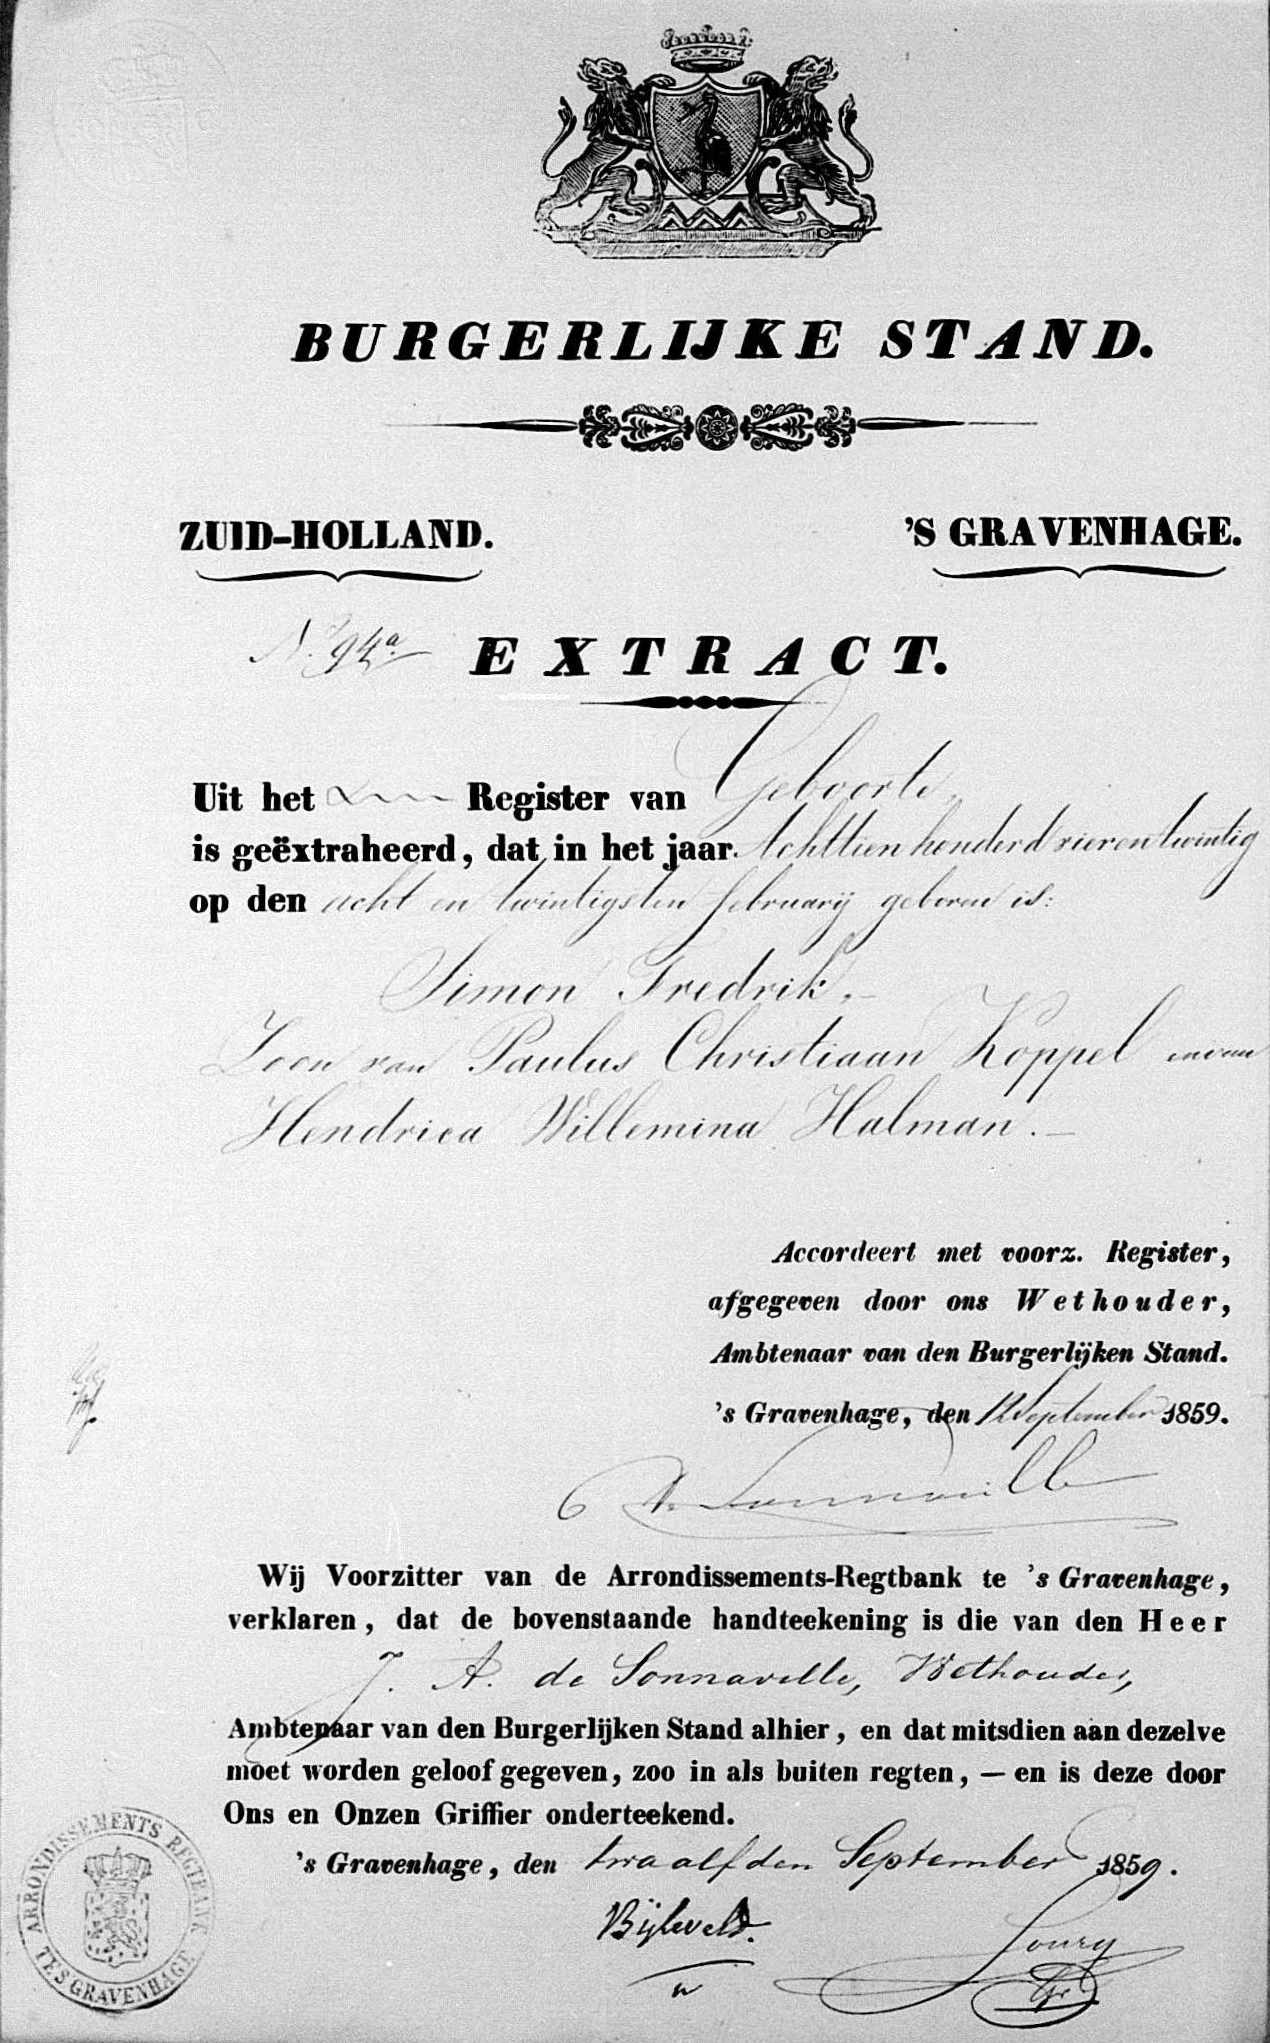 BURGERLIJKE STAND.
ZUID-HOLLAND. 'S GRAVENHAGE.
No. 94a. EXTRACT.
Uit het Register van Geboorte,
is geëxtraheerd, dat in het jaar Achttien honderd vier en twintig
op den acht en twintigsten februarij geboren is:
Simon Fredrik,
Zoon van Paulus Christiaan Koppel en van
Hendrica Willemina Halman.
Accordeert met voorz. Register,
afgegeven door ons Wethouder,
Ambtenaar van den Burgerlijken Stand.
's Gravenhage, den 12 September 1859.
de Sonnaville
Wij Voorzitter van de Arrondissements-Regtbank te 's Gravenhage,
verklaren, dat de bovenstaande handteekening is die van den Heer
J. A. de Sonnaville, Wethouder,
Ambtenaar van den Burgerlijken Stand alhier, en dat mitsdien aan dezelve
moet worden geloof gegeven, zoo in als buiten regten, — en is deze door
Ons en Onzen Griffier onderteekend.
's Gravenhage, den twaalfden September 1859.
Bijleveld.
ARRONDISSEMENTS REGTBANK
TE S'GRAVENHAGE